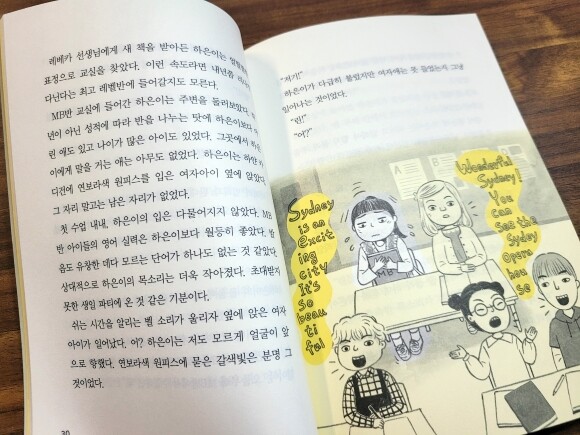 레베카 선생님에게 새 책을 받아든 하은이는
표정으로 교실을 찾았다. 이런 속도라면 내년쯤
다닌다는 최고 레벨반에 들어갈지도 모른다.
MB반 교실에 들어간 하은이는 주변을 둘러보았다.
년이 아닌 성적에 따라 반을 나누는 탓에 하은이보다 어
린 애도 있고 나이가 많은 아이도 있었다. 그곳에서 하은
이에게 말을 거는 애는 아무도 없었다. 하은이는 하얀 카
디건에 연보라색 원피스를 입은 여자아이 옆에 앉았다.
그 자리 말고는 남은 자리가 없었다.
첫 수업 내내, 하은이의 입은 다물어지지 않았다. MB
반 아이들의 영어 실력은 하은이보다 월등히 좋았다. 발
음도 유창한 데다 모르는 단어가 하나도 없는 것 같았다.
상대적으로 하은이의 목소리는 더욱 작아졌다. 초대받지
못한 생일 파티에 온 것 같은 기분이다.
쉬는 시간을 알리는 벨 소리가 울리자 옆에 앉은 여자
아이가 일어났다. 어? 하은이는 저도 모르게 얼굴이 앞
으로 향했다. 연보라색 원피스에 묻은 갈색빛은 분명 그
것이었다.
30
“저기!”
하은이가 다급히 불렀지만 여자애는 못 들었는지 그냥
일어나는 것이었다.
“린!”
“어?”
Sydney
is an
excit
ing
city
It's
so
beau
ti
ful
Wonderful
Sydney!
You
can
see the
Sydey
Opera
hou
se
MB